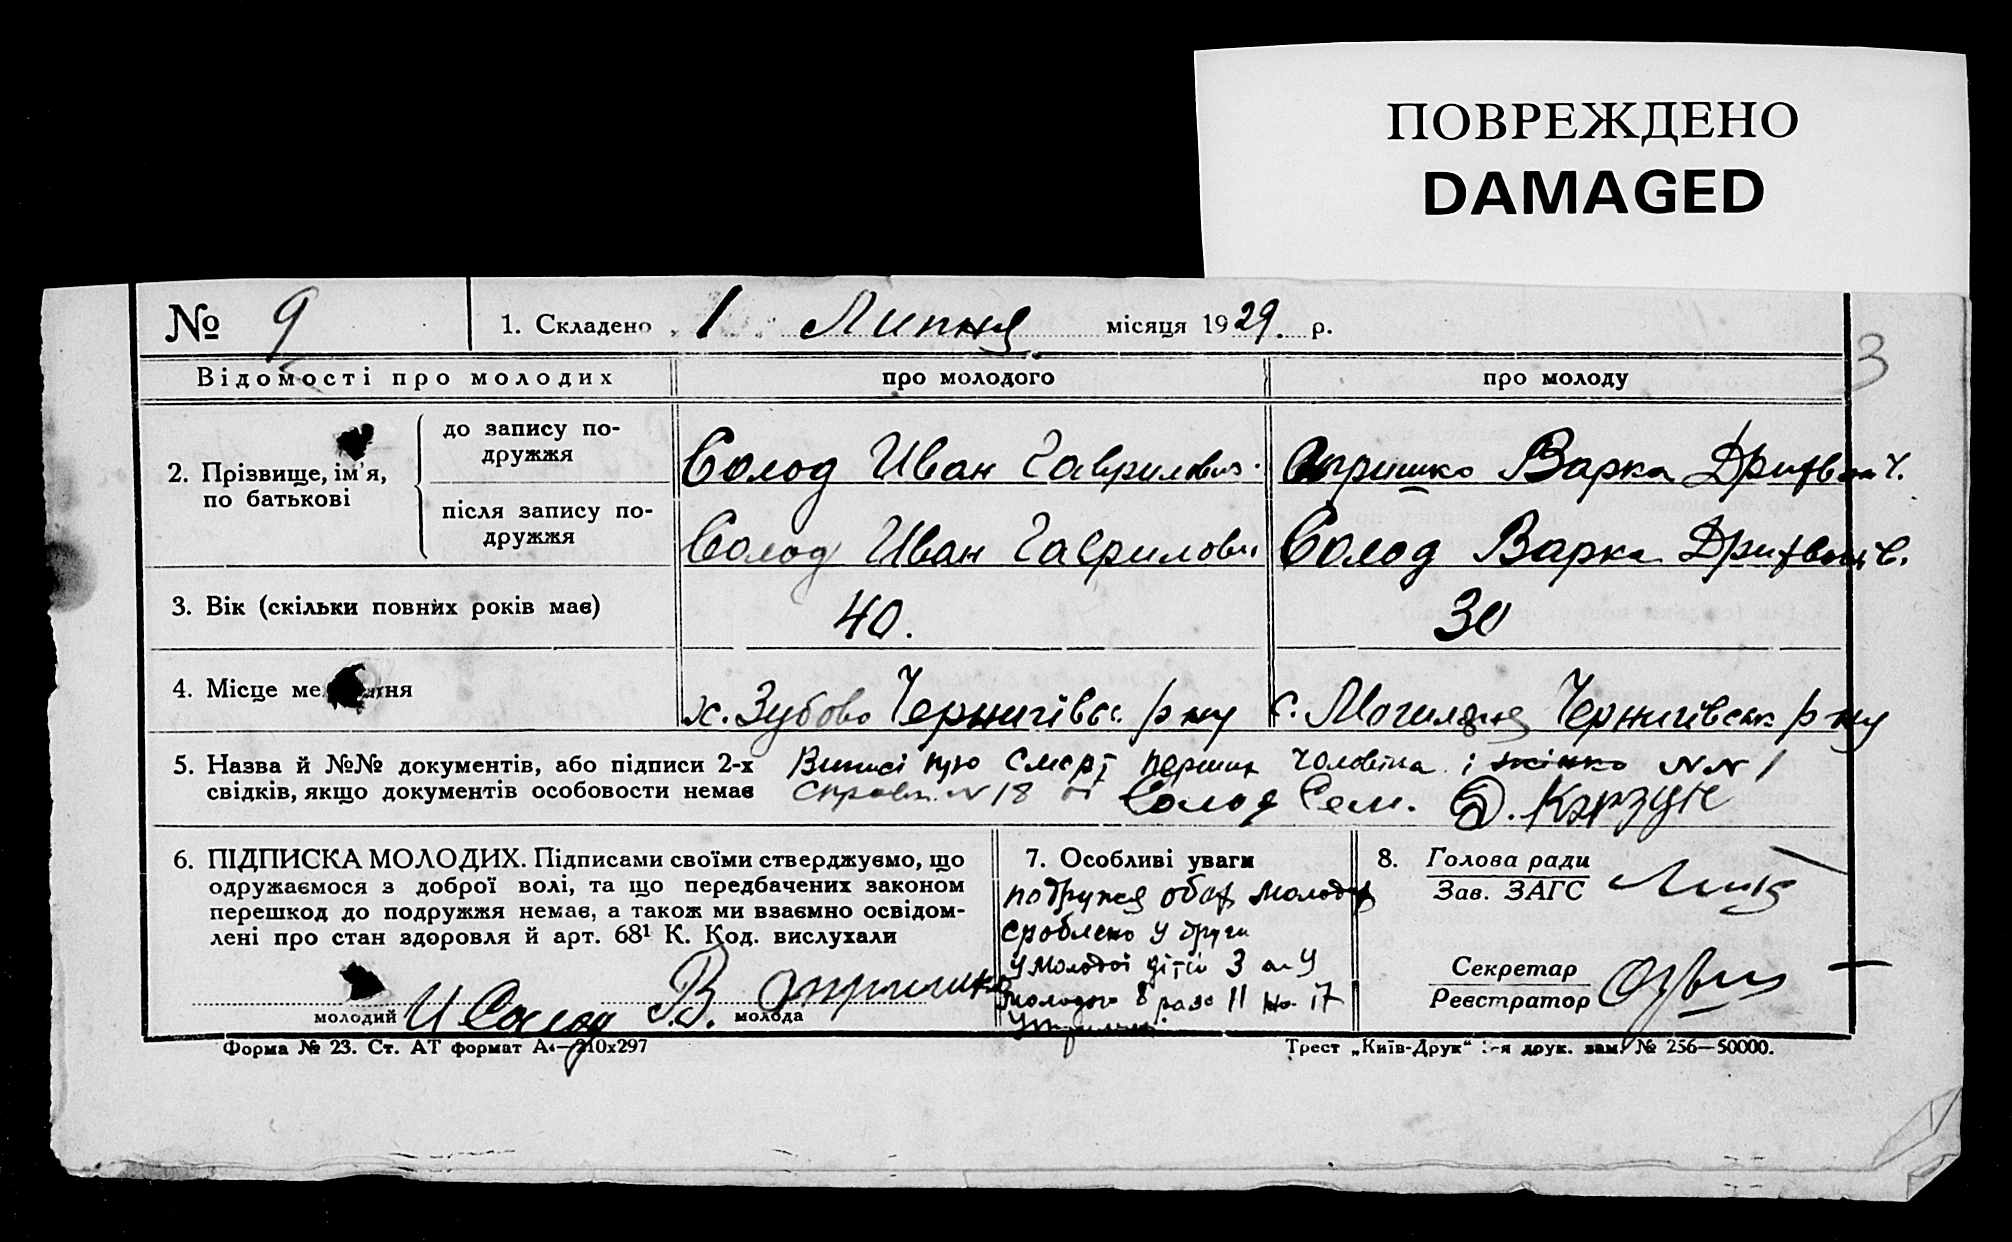 ПОВРЕЖДЕНО
DAMAGED
№ 9
1. Складено 1 Липня місяця 1929 р.
3
Відомості про молодих
про молодого
про молоду
2. Прізвище, ім'я, по батькові
до запису подружжя
Солод Иван Гаврилович
Опришко Варка
після запису подружжя
Солод Иван Гаврилович
Солод Варка
3. Вік (скільки повних років має)
40.
30
4. Місце ме ння
х. Зубово Чернигівсь. р-ну
с. Чернигівськ р-ну
5. Назва й №№ документів, або підписи 2-х
свідків, якщо документів особовости немає
Виписі про смерт перших чоловіка і жінки NN 1
Справк. N 18 Солод Сем.
6. ПІДПИСКА МОЛОДИХ. Підписами своїми стверджуємо, що
одружаємося з доброї волі, та що передбачених законом
перешкод до подружжя немає, а також ми взаємно освідом-
лені про стан здоровля й арт. 68¹ К. Код. вислухали
молодий И Солод
В. Опришко молода
7. Особливі уваги
подружжя обох молодих
зроблено у други
у молодої дітей 3 а у
молодого 8 разо 11 на їх
8. Голова ради
Зав. ЗАГС
Секретар
Реєстратор
Форма № 23. Ст. АТ формат А4—210х297
Трест „Київ-Друк" -я друк. зам. № 256—50000.